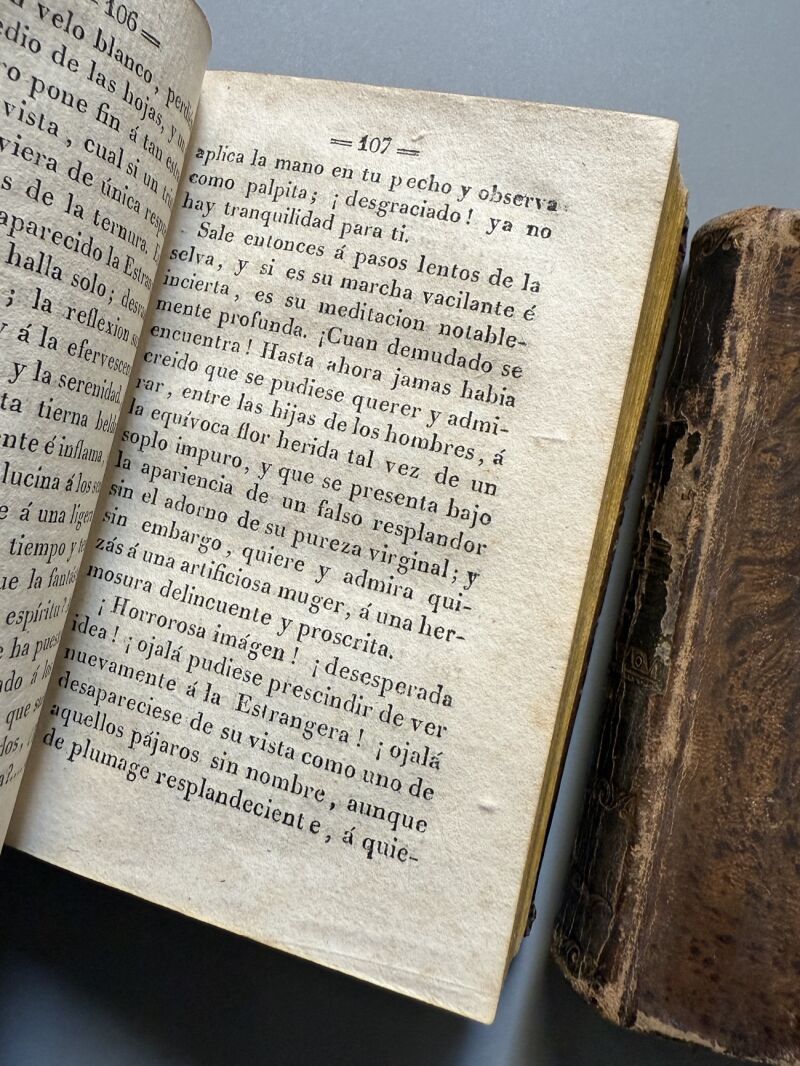 106 =
velo blanco,
edio de las hojas, y
pone fin á tan
vista, cual si un
viera de única
s de la ternura.
aparecido la
halla solo;
; la reflexion
y á la
y la serenidad
ta tierna
ente é inflama,
lucina á los
e á una
tiempo y
que la
espíritu?
e ha
ado á
que
dos,
= 107 =
aplica la mano en tu pecho y observa
como palpita; ¡desgraciado! ya no
hay tranquilidad para ti.
Sale entonces á pasos lentos de la
selva, y si es su marcha vacilante é
incierta, es su meditacion notable-
mente profunda. ¡Cuan demudado se
encuentra! Hasta ahora jamas habia
creido que se pudiese querer y admi-
rar, entre las hijas de los hombres, á
la equívoca flor herida tal vez de un
soplo impuro, y que se presenta bajo
la apariencia de un falso resplandor
sin el adorno de su pureza virginal; y
sin embargo, quiere y admira qui-
zás á una artificiosa muger, á una her-
mosura delincuente y proscrita.
¡Horrorosa imágen! ¡desesperada
idea! ¡ojalá pudiese prescindir de ver
nuevamente á la Estrangera! ¡ojalá
desapareciese de su vista como uno de
aquellos pájaros sin nombre, aunque
de plumage resplandeciente, á quie-